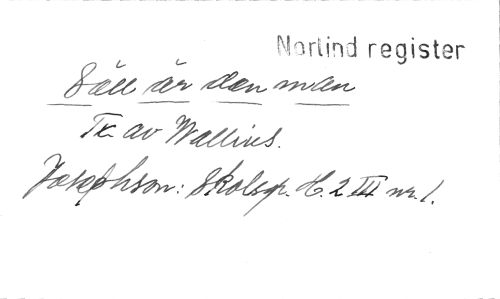 Norlind register
Säll är den man
Tx. av Wallius.
Josephson: Skolsp. H. 2 III nr. 1.